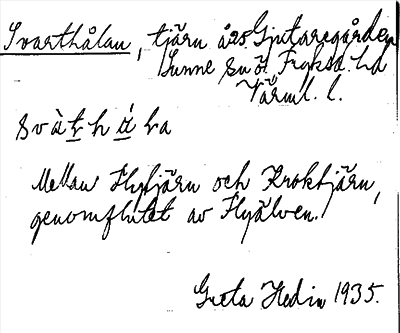 Svarthålan, tjärn å ägor Gjutaregården
Sunne sn Ö. Fryksd. hd
Värml. l.
svàt h á la
Mellan Flytjärn och Kroktjärn,
genomflutet av Flyälven.
Greta Hedin 1935.